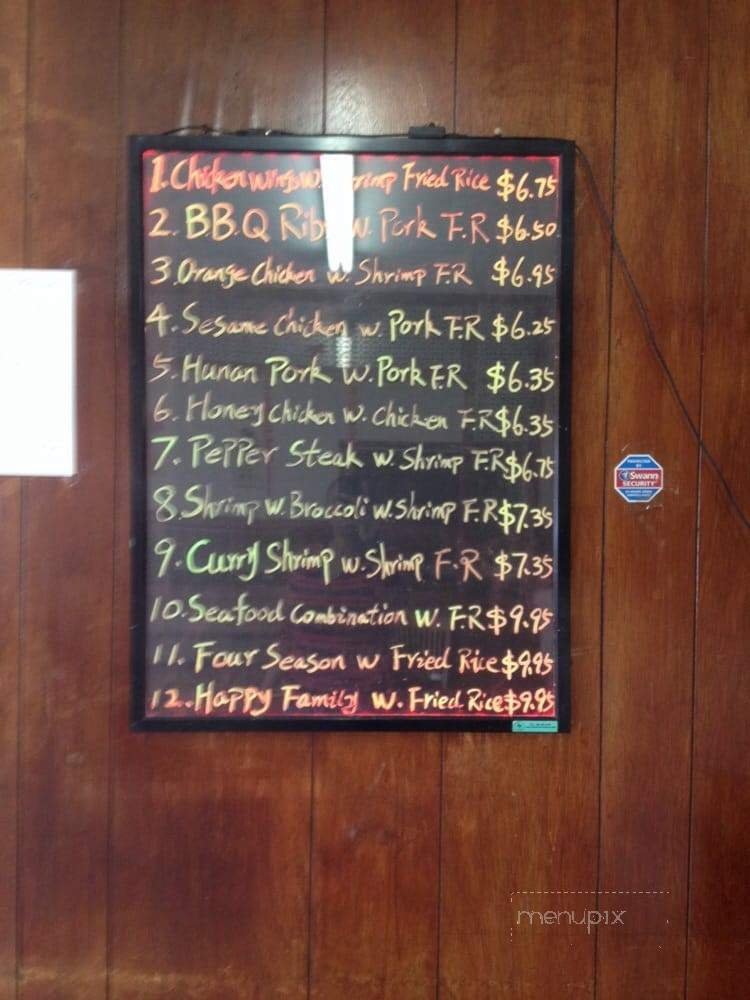 1. Chicken wings w. Shrimp Fried Rice $6.75
2. B B.Q Ribs w. Pork F.R $6.50
3. Orange Chicken w. Shrimp F.R $6.95
4. Sesame Chicken w. Pork F.R $6.25
5. Hunan Pork w. Pork F.R $6.35
6. Honey chicken w. Chicken F.R $6.35
7. Pepper Steak w. Shrimp F.R $6.75
8. Shrimp w. Broccoli w. Shrimp F.R $7.35
9. Curry Shrimp w. Shrimp F.R $7.35
10. Seafood Combination w. F.R $9.95
11. Four Season w Fried Rice $9.95
12. Happy Family w. Fried Rice $9.95
PROTECTED
BY
Swann
SECURITY
menupix